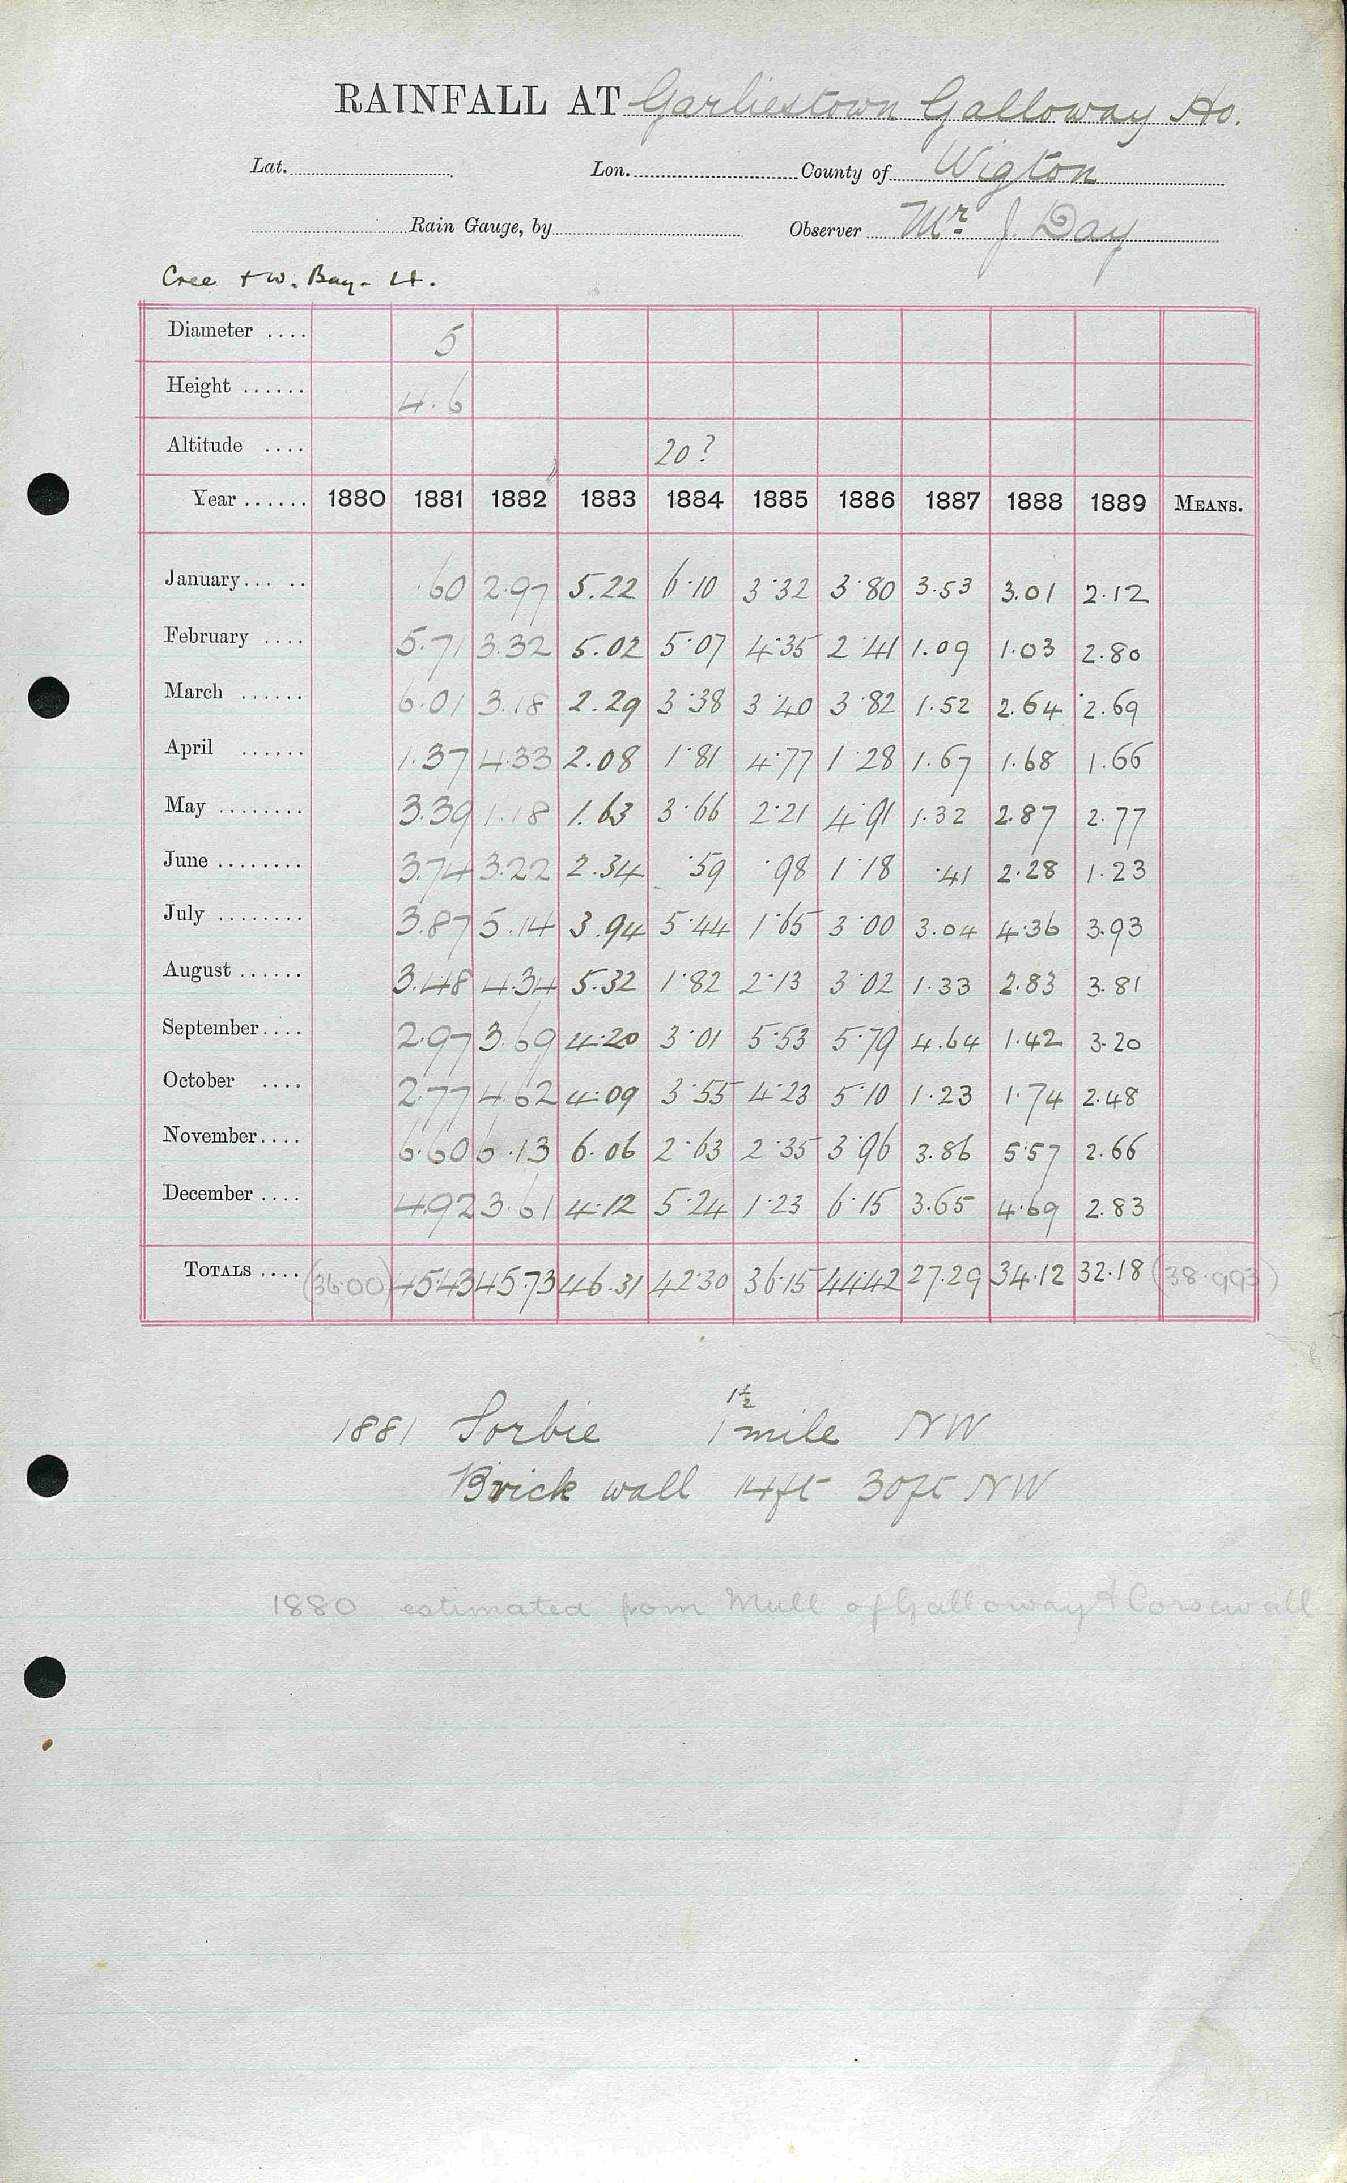 RAINFALL AT Garliestown Galloway Ho.
Lat. Lon. County of Wigton
Rain Gauge, by Observer Mr J. Day
Cree + W. Bay. Lt.
Diameter .... 5
Height ...... 4.6
Altitude .... 20?
Year ...... 1880 1881 1882 1883 1884 1885 1886 1887 1888 1889 MEANS.
January... .. .60 2.97 5.22 6.10 3.32 3.80 3.53 3.01 2.12
February .... 5.71 3.32 5.02 5.07 4.35 2.41 1.09 1.03 2.80
March ...... 6.01 3.18 2.29 3.38 3.40 3.82 1.52 2.64 2.69
April ...... 1.37 4.33 2.08 1.81 4.77 1.28 1.67 1.68 1.66
May ........ 3.39 1.18 1.63 3.66 2.21 4.91 1.32 2.87 2.77
June ........ 3.74 3.22 2.34 .59 .98 1.18 .41 2.28 1.23
July ........ 3.87 5.14 3.94 5.44 1.65 3.00 3.04 4.36 3.93
August ...... 3.48 4.34 5.32 1.82 2.13 3.02 1.33 2.83 3.81
September .... 2.97 3.69 4.20 3.01 5.53 5.79 4.64 1.42 3.20
October .... 2.77 4.62 4.09 3.55 4.23 5.10 1.23 1.74 2.48
November .... 6.60 6.13 6.06 2.63 2.35 3.96 3.86 5.57 2.66
December .... 4.92 3.61 4.12 5.24 1.23 6.15 3.65 4.69 2.83
TOTALS .... (36.00) 45.43 45.73 46.31 42.30 36.15 44.42 27.29 34.12 32.18 (38.993)
1½
1881 Sorbie 1 mile NW
Brick wall 14ft 30ft NW
1880 estimated from Mull of Galloway & Corsewall